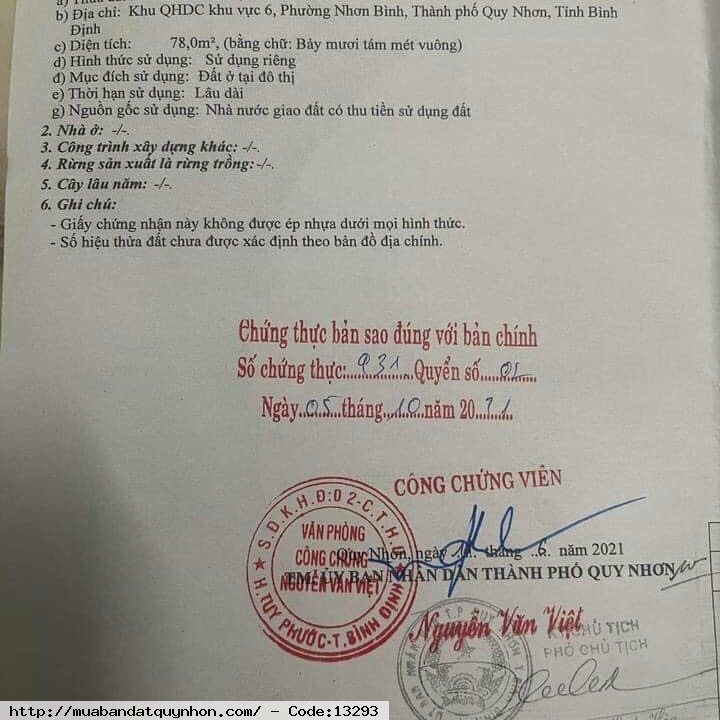 b) Địa chỉ: Khu QHDC khu vực 6, Phường Nhơn Bình, Thành phố Quy Nhơn, Tỉnh Bình
Định
c) Diện tích: 78,0m², (bằng chữ: Bảy mươi tám mét vuông)
d) Hình thức sử dụng: Sử dụng riêng
đ) Mục đích sử dụng: Đất ở tại đô thị
e) Thời hạn sử dụng: Lâu dài
g) Nguồn gốc sử dụng: Nhà nước giao đất có thu tiền sử dụng đất
2. Nhà ở: -/-.
3. Công trình xây dựng khác: -/-.
4. Rừng sản xuất là rừng trồng: -/-.
5. Cây lâu năm: -/-.
6. Ghi chú:
- Giấy chứng nhận này không được ép nhựa dưới mọi hình thức.
- Số hiệu thửa đất chưa được xác định theo bản đồ địa chính.
Chứng thực bản sao đúng với bản chính
Số chứng thực:....931....Quyển số....01....
Ngày..05..tháng..10..năm 20.21.
CÔNG CHỨNG VIÊN
S.Đ.K.H.Đ:02-C.T.H.U
VĂN PHÒNG
CÔNG CHỨNG
NGUYỄN VĂN VIỆT
H.TUY PHƯỚC-T.BÌNH ĐỊNH
Quy Nhơn, ngày tháng .6. năm 2021
TM. ỦY BAN NHÂN DÂN THÀNH PHỐ QUY NHƠN
Nguyễn Văn Việt
CHỦ TỊCH
PHÓ CHỦ TỊCH
http://muabandatquynhon.com/ - Code:13293